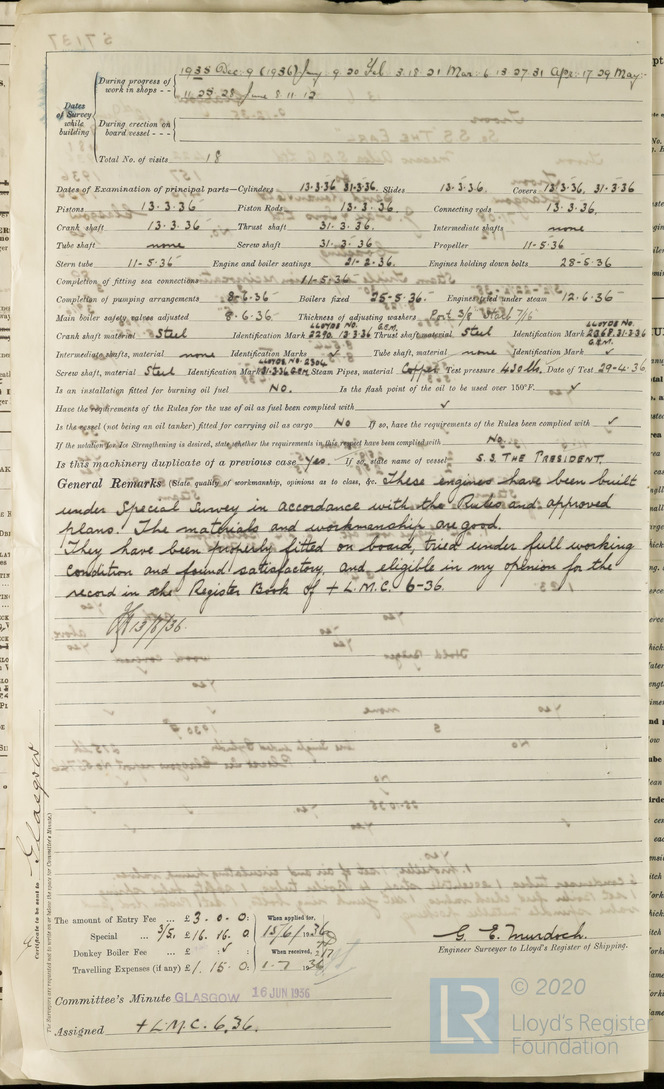 Dates of Survey while building
During progress of work in shops - - 1935 Dec. 9 (1936) Jany 9. 20 Feb 3. 18. 21 Mar. 6. 13. 27. 31 Apr. 17 29 May.
11. 25. 28. June 8. 11. 12
During erection on board vessel - - -
Total No. of visits 18
Dates of Examination of principal parts—Cylinders 13.3.36 31.3.36. Slides 13.3.36. Covers 13.3.36, 31.3.36
Pistons 13.3.36 Piston Rods 13.3.36. Connecting rods 13.3.36.
Crank shaft 13.3.36 Thrust shaft 31.3.36. Intermediate shafts none
Tube shaft none Screw shaft 31.3.36 Propeller 11-5.36
Stern tube 11-5.36 Engine and boiler seatings 21-2.36. Engines holding down bolts 28-5.36
Completion of fitting sea connections 11-5.36
Completion of pumping arrangements 8-6.36 Boilers fixed 25-5.36. Engines tried under steam 12.6.36
Main boiler safety valves adjusted 8.6.36 Thickness of adjusting washers Port 3/8 Stbd 7/16
Crank shaft material Steel Identification Mark LLOYDS NO. 2290. 13.3.36 G.E.M. Thrust shaft material Steel Identification Mark LLOYDS NO. 2368. 31.3.36 G.E.M.
Intermediate shafts, material none Identification Marks ✓ Tube shaft, material none Identification Mark ✓
Screw shaft, material Steel Identification Mark LLOYDS NO. 2304 31.3.36 G.E.M. Steam Pipes, material Copper Test pressure 430 lbs. Date of Test 29-4.36
Is an installation fitted for burning oil fuel NO. Is the flash point of the oil to be used over 150°F. ✓
Have the requirements of the Rules for the use of oil as fuel been complied with ✓
Is the vessel (not being an oil tanker) fitted for carrying oil as cargo No If so, have the requirements of the Rules been complied with ✓
If the notation for Ice Strengthening is desired, state whether the requirements in this respect have been complied with No.
Is this machinery duplicate of a previous case Yes. If so, state name of vessel S.S. THE PRESIDENT.
General Remarks (State quality of workmanship, opinions as to class, &c. These engines have been built
under Special Survey in accordance with the Rules and approved
plans. The materials and workmanship are good.
They have been properly fitted on board, tried under full working
condition and found satisfactory, and eligible in my openion for the
record in the Register Book of + L.M.C. 6-36.
13/6/36.
Certificate to be sent to Glasgow
(The Surveyors are requested not to write on or below the space for Committee's Minute.)
The amount of Entry Fee ... £ 3 . 0 . 0 : When applied for,
Special ... 3/5. £ 16. 16. 0 13/6/1936
Donkey Boiler Fee ... £ : ✓ : When received,
Travelling Expenses (if any) £ 1. 15. 0: 1-7 1936
G. E. Murdoch.
Engineer Surveyor to Lloyd's Register of Shipping.
Committee's Minute GLASGOW 16 JUN 1936
Assigned + L.M.C. 6.36.
LR © 2020
Lloyd's Register
Foundation